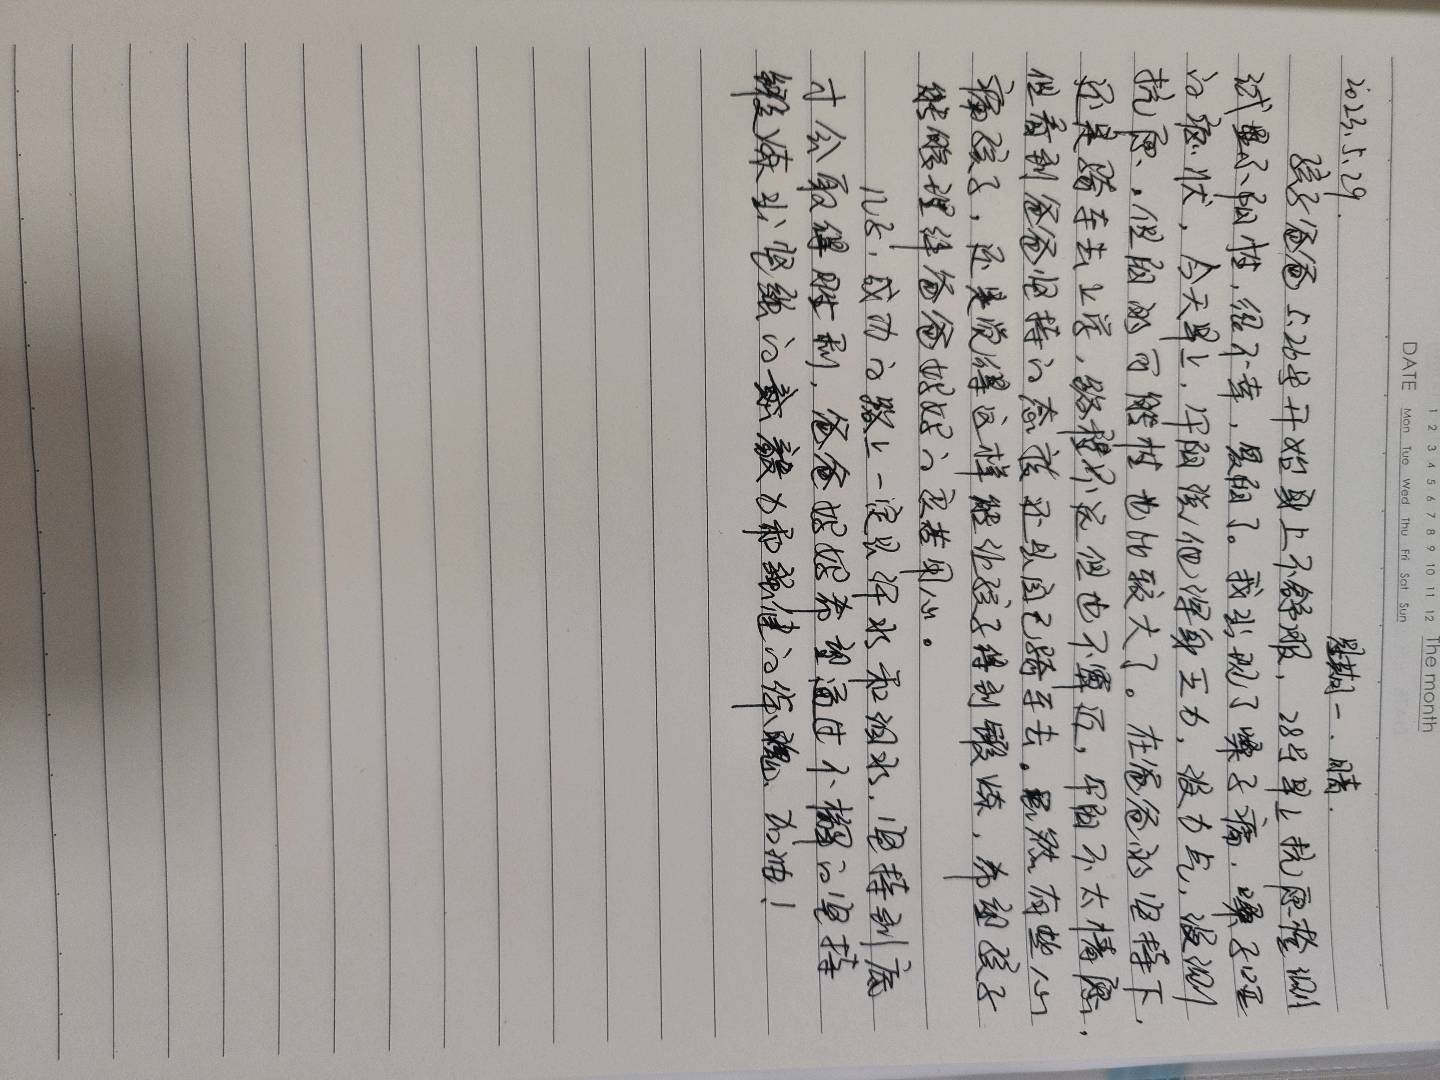 The month
1 2 3 4 5 6 7 8 9 10 11 12
DATE Mon Tue Wed Thu Fri Sat Sun
2023.5.29. 星期一.晴.
孩子爸爸5.26号开始身上不舒服，28号早上抗原检测
试显示阳性，很不幸，复阳了。我出现了嗓子痛，嗓子哑
的症状，今天早上，阳阳说他浑身乏力，没力气，没测
抗原，但阳的可能性也比较大了。在爸爸的坚持下，
还是骑车去上学，路程不远但也不算近，阳阳不太情愿，
但看到爸爸坚持的态度还是自己骑车去。虽然有些心
痛孩子，还是觉得这样能让孩子得到锻炼，希望孩子
能够理解爸爸妈妈的良苦用心。
儿子，成功的路上一定是汗水和泪水，坚持到底
才会取得胜利，爸爸妈妈希望通过不懈的坚持
锻炼出坚强的毅力和强健的体魄，加油！